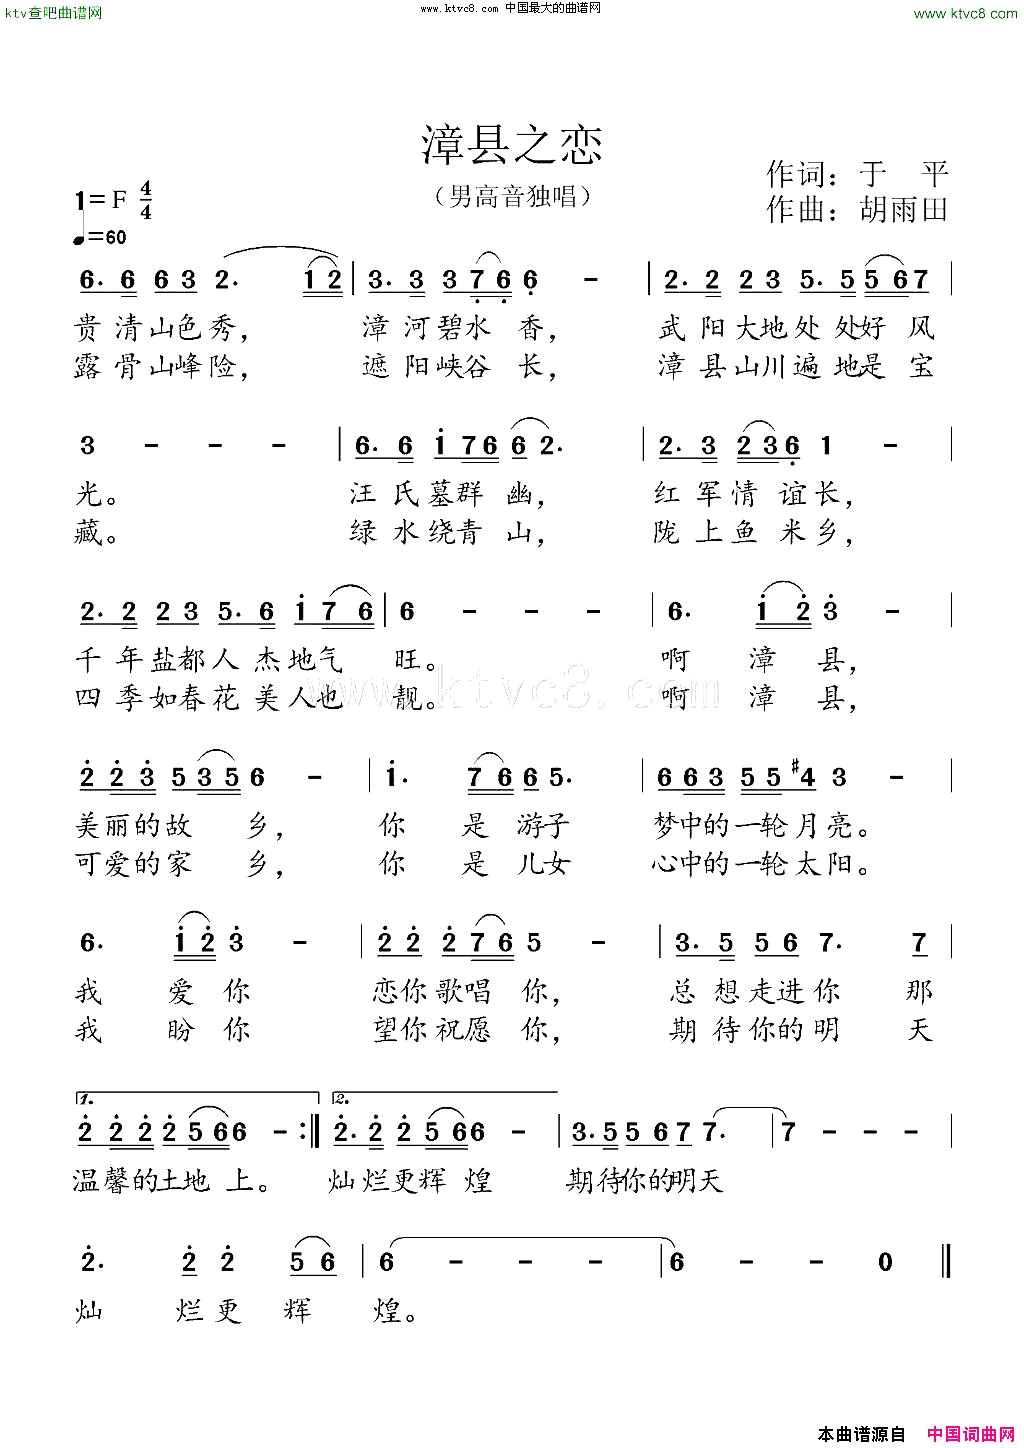 www.ktvc8.com 中国最大的曲谱网
ktv查吧曲谱网
www.ktvc8.com
漳县之恋
（男高音独唱）
作词：于 平
作曲：胡雨田
1=F 4/4
♩=60
6. 6 6 3 2. 1 2 | 3. 3 3 7 6 6 - | 2. 2 2 3 5. 5 5 6 7 |
贵清山色秀， 漳河碧水香， 武阳大地处处好风
露骨山峰险， 遮阳峡谷长， 漳县山川遍地是宝
3 - - - | 6. 6 i 7 6 6 2. | 2. 3 2 3 6 1 - |
光。 汪氏墓群幽， 红军情谊长，
藏。 绿水绕青山， 陇上鱼米乡，
2. 2 2 3 5. 6 i 7 6 | 6 - - - | 6. i 2 3 - |
千年盐都人杰地气旺。 啊漳县，
四季如春花美人也靓。 啊漳县，
www.ktvc8.com
2 2 3 5 3 5 6 - | i. 7 6 6 5. | 6 6 3 5 5 #4 3 - |
美丽的故乡， 你是游子 梦中的一轮月亮。
可爱的家乡， 你是儿女 心中的一轮太阳。
6. i 2 3 - | 2 2 2 7 6 5 - | 3. 5 5 6 7. 7 |
我爱你 恋你歌唱你， 总想走进你那
我盼你 望你祝愿你， 期待你的明天
1. 2.
2 2 2 2 5 6 6 - :| 2. 2 2 5 6 6 - | 3. 5 5 6 7 7. | 7 - - |
温馨的土地上。 灿烂更辉煌 期待你的明天
2. 2 2 5 6 | 6 - - - | 6 - - 0 ||
灿烂更辉煌。
本曲谱源自 中国词曲网